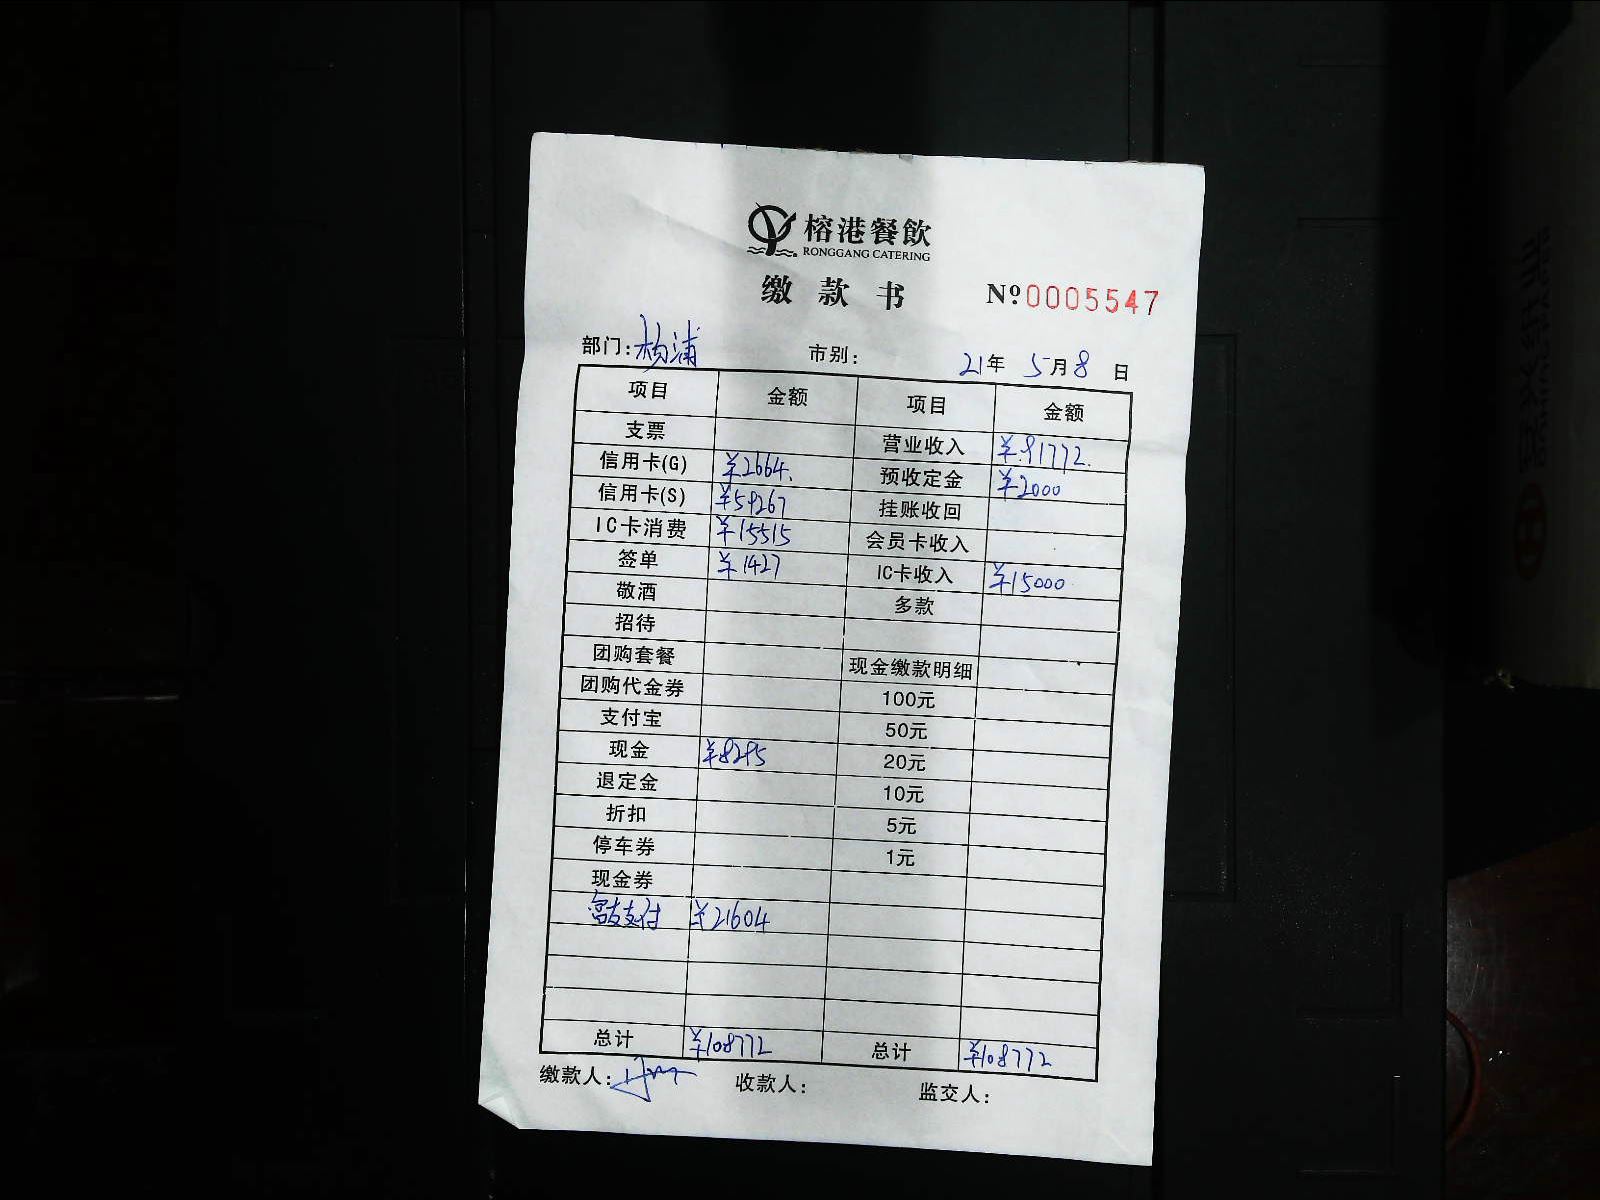 榕港餐飲
RONGGANG CATERING
缴款书 Nº0005547
部门:杨浦 市别: 21年 5月8日
项目 金额 项目 金额
支票 营业收入 ¥91772.
信用卡(G) ¥2664. 预收定金 ¥2000
信用卡(S) ¥59267 挂账收回
IC卡消费 ¥15515 会员卡收入
签单 ¥1427 IC卡收入 ¥15000
敬酒 多款
招待
团购套餐 现金缴款明细
团购代金券 100元
支付宝 50元
现金 ¥8295 20元
退定金 10元
折扣 5元
停车券 1元
现金券
富友支付 ¥21604
总计 ¥108772 总计 ¥108772
缴款人: 收款人: 监交人: